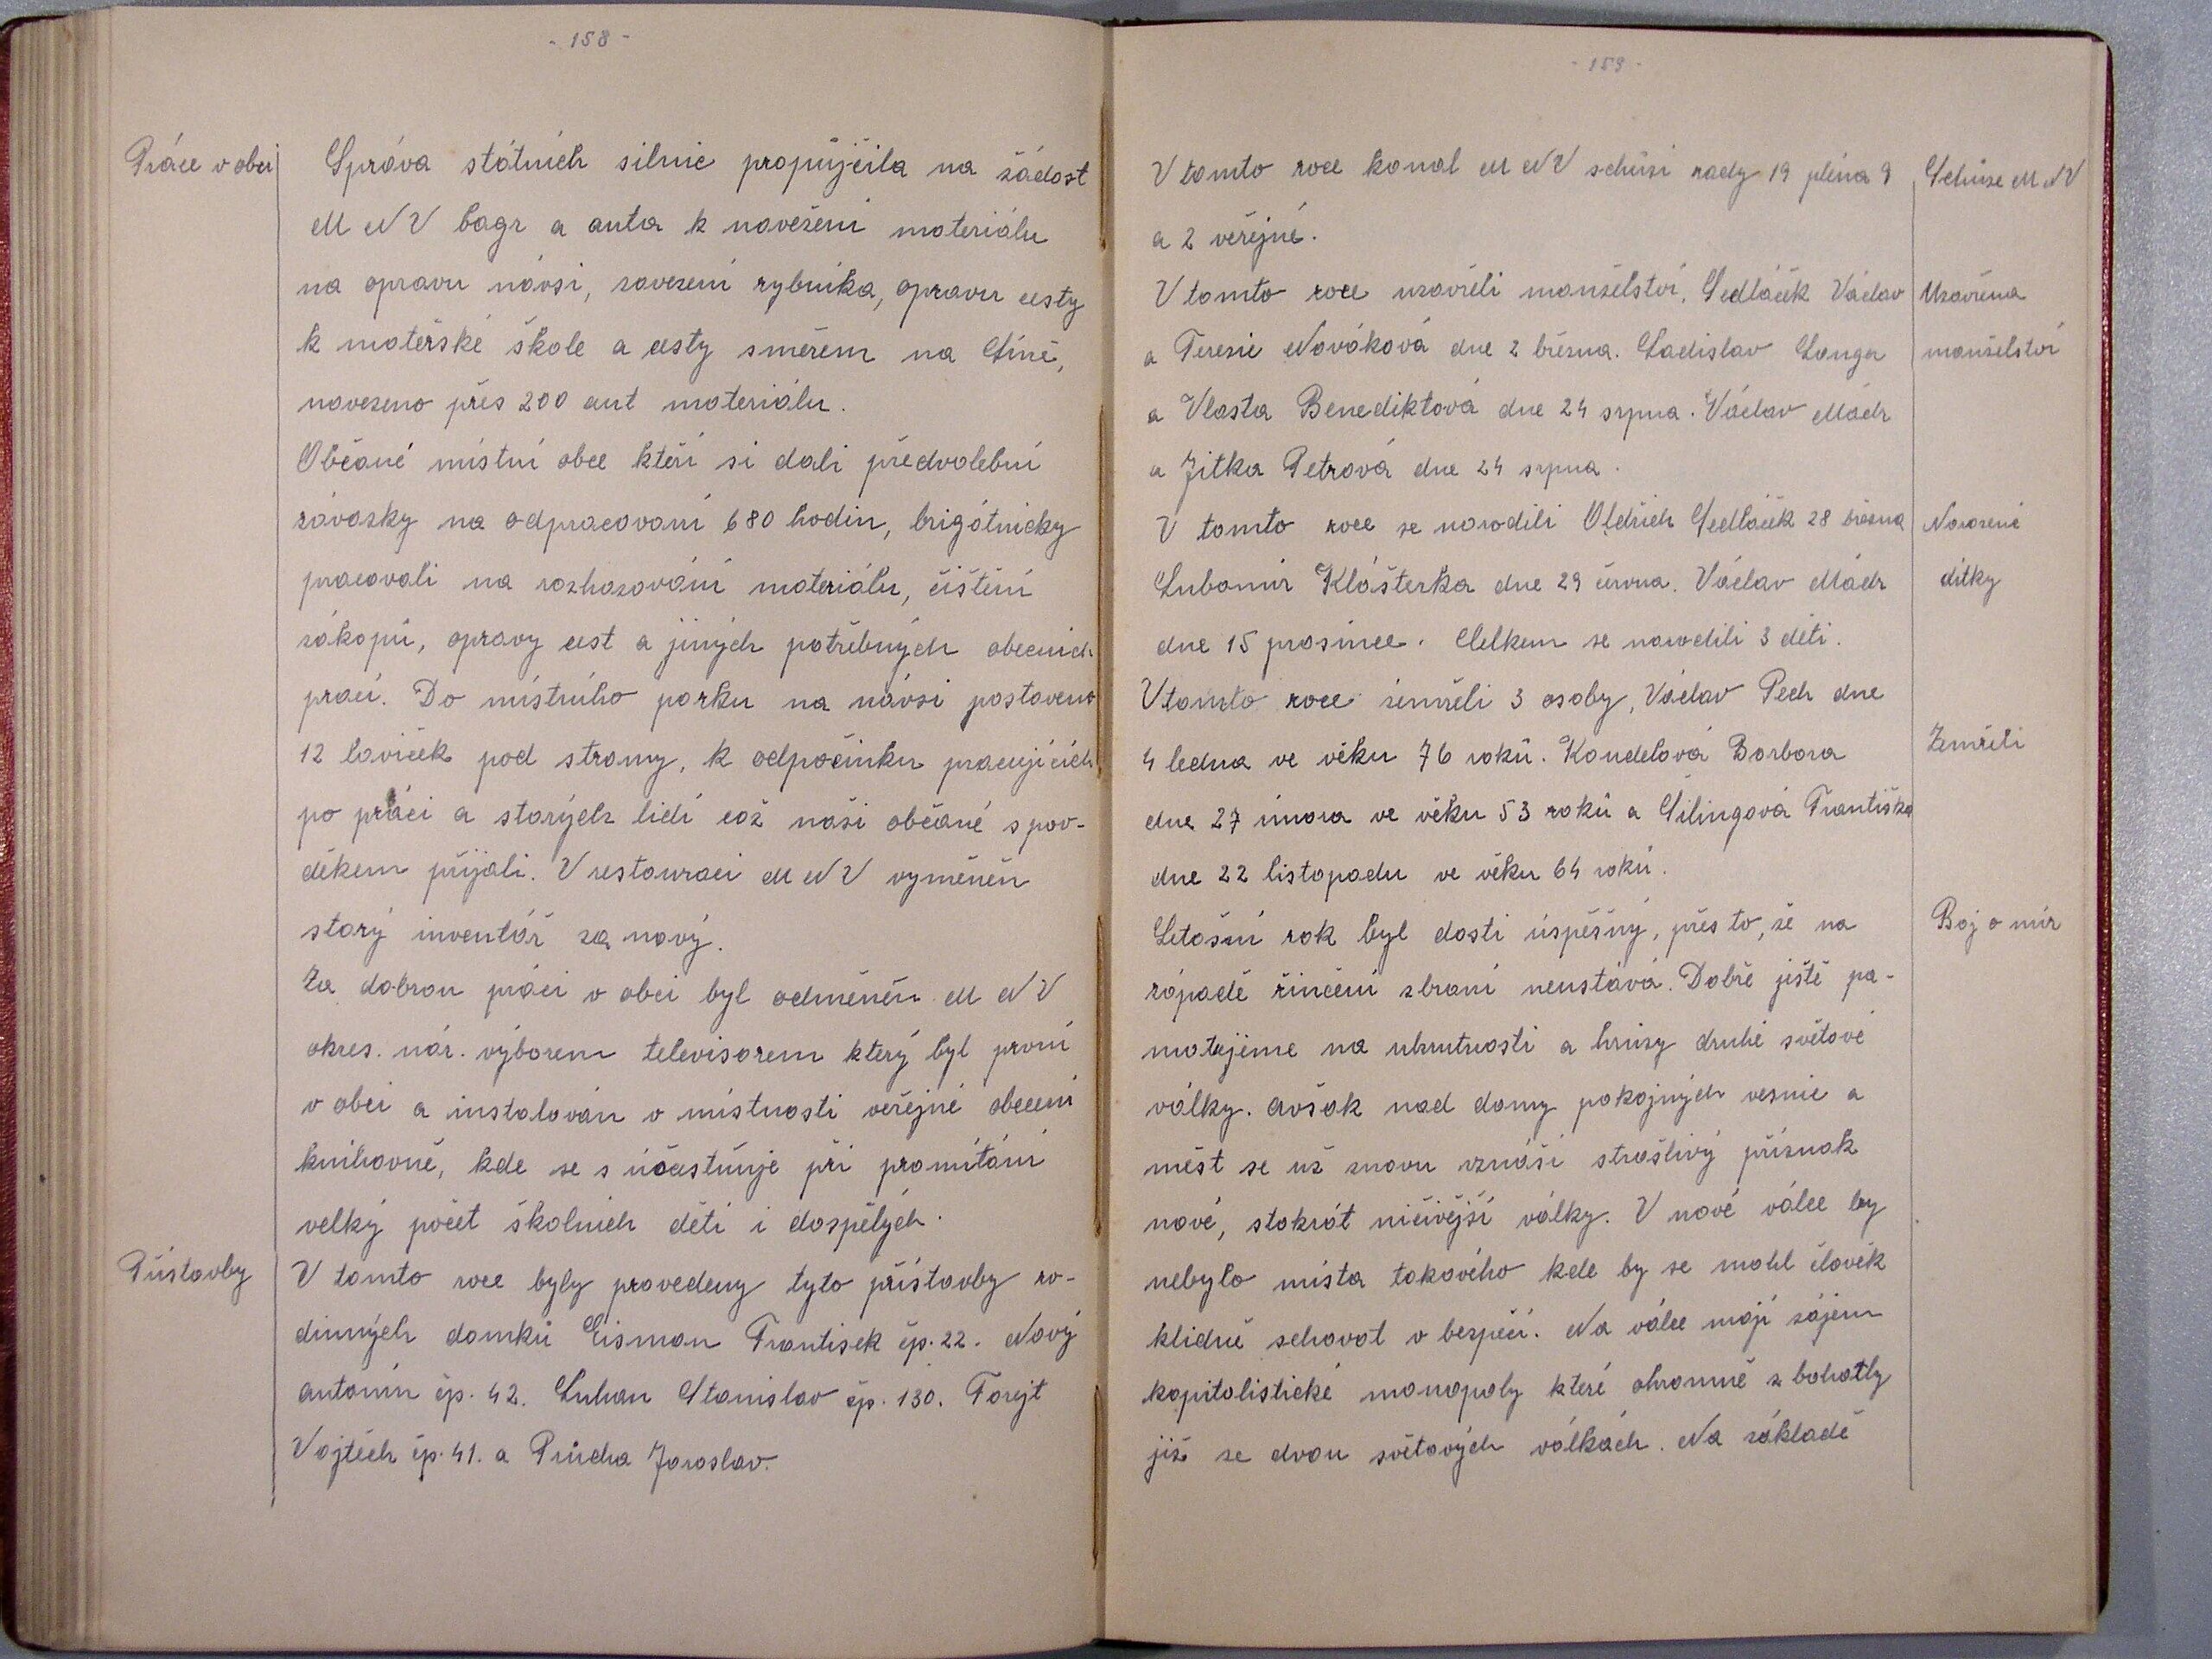 - 158 -
Práce v obci
Správa státních silnic propůjčila na žádost
M N V bagr a auta k navežení materiálu
na opravu návsi, zavezení rybníka, opravu cesty
k mateřské škole a cesty směrem na Líně,
navezeno přes 200 aut materiálu.
Občané místní obce kteří si dali předvolební
závazky na odpracovaní 680 hodin, brigátnicky
pracovali na rozhazování materiálu, čištění
zákopů, opravy cest a jiných potřebných obecních
prací. Do místního parku na návsi postaveno
12 laviček pod stromy, k odpočinku pracujících
po práci a starých lidí což naši občané s pov-
děkem přijali. V restauraci M N V vyměněn
starý inventář za nový.
Za dobrou práci v obci byl odměněn M N V
okres. nár. výborem televisorem který byl první
v obci a instalován v místnosti veřejné obecní
knihovně, kde se súčastňuje při promítání
velký počet školních dětí i dospělých.
Přístavby
V tomto roce byly provedeny tyto přístavby ro-
dinných domků Eisman Frantisek čp. 22. Nový
Antonín čp. 42. Luhan Stanislav čp. 130. Forejt
Vojtěch čp. 41. a Průcha Jaroslav.
- 159 -
V tomto roce konal M N V schůsi rady 19 pléna 9
a 2 veřejné.
Schůze M N V
V tomto roce uzavřeli manželství, Sedláček Václav
a Terezie Nováková dne 2 března. Ladislav Langer
a Vlasta Benediktová dne 24 srpna. Václav Mádr
a Jitka Petrová dne 24 srpna.
Uzavřena
manželství
V tomto roce se narodili Oldřich Sedláček 28 března
Lubomír Klášterka dne 29 června. Václav Mádr
dne 15 prosince. Celkem se narodili 3 děti.
Narozené
dítky
V tomto roce zemřeli 3 osoby, Václav Pech dne
4 ledna ve věku 76 roků. Koudelová Barbora
dne 27 února ve věku 53 roků a Šilingová Františka
dne 22 listopadu ve věku 64 roků.
Zemřeli
Letošní rok byl dosti úspěšný, přes to, že na
západě řinčení zbraní neustává. Dobře ještě pa-
matujeme na ukrutnosti a hrůzy druhé světové
války. Avšak nad domy pokojných vesnic a
měst se už znovu vznáší strašlivý příznak
nové, stokrát ničivější války. V nové válce by
nebylo místa takového kde by se mohl člověk
klidně schovat v bezpečí. Na válce mají zájem
kapitolistické monopoly které ohromně zbohatly
již ze dvou světových válkách. Na základě
Boj o mír